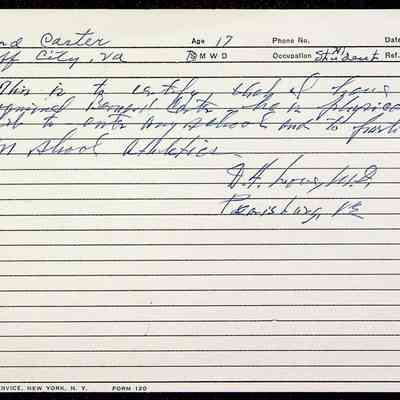 nd Carter Age 17 Phone No. Date
ff City, Va S M W D Occupation Student Ref.
This is to certify, that I have
examined Bernard Carter, he is physica
to enter any school and to parti
in school athletics.
D.H. M.D.
Pearisburg, Va
ERVICE, NEW YORK, N. Y. FORM 120